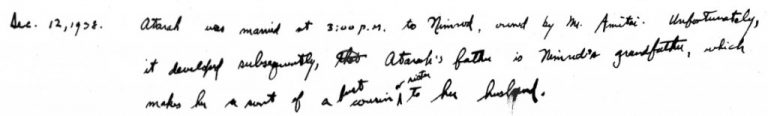 Dec. 12, 1938. Atarah was married at 3:00 P.M. to Nimrod, owned by Mr. Amitai. Unfortunately,
it developed subsequently, that Atarah's father is Nimrod's grandfather, which
makes her a sort of a first cousin or sister to her husband.